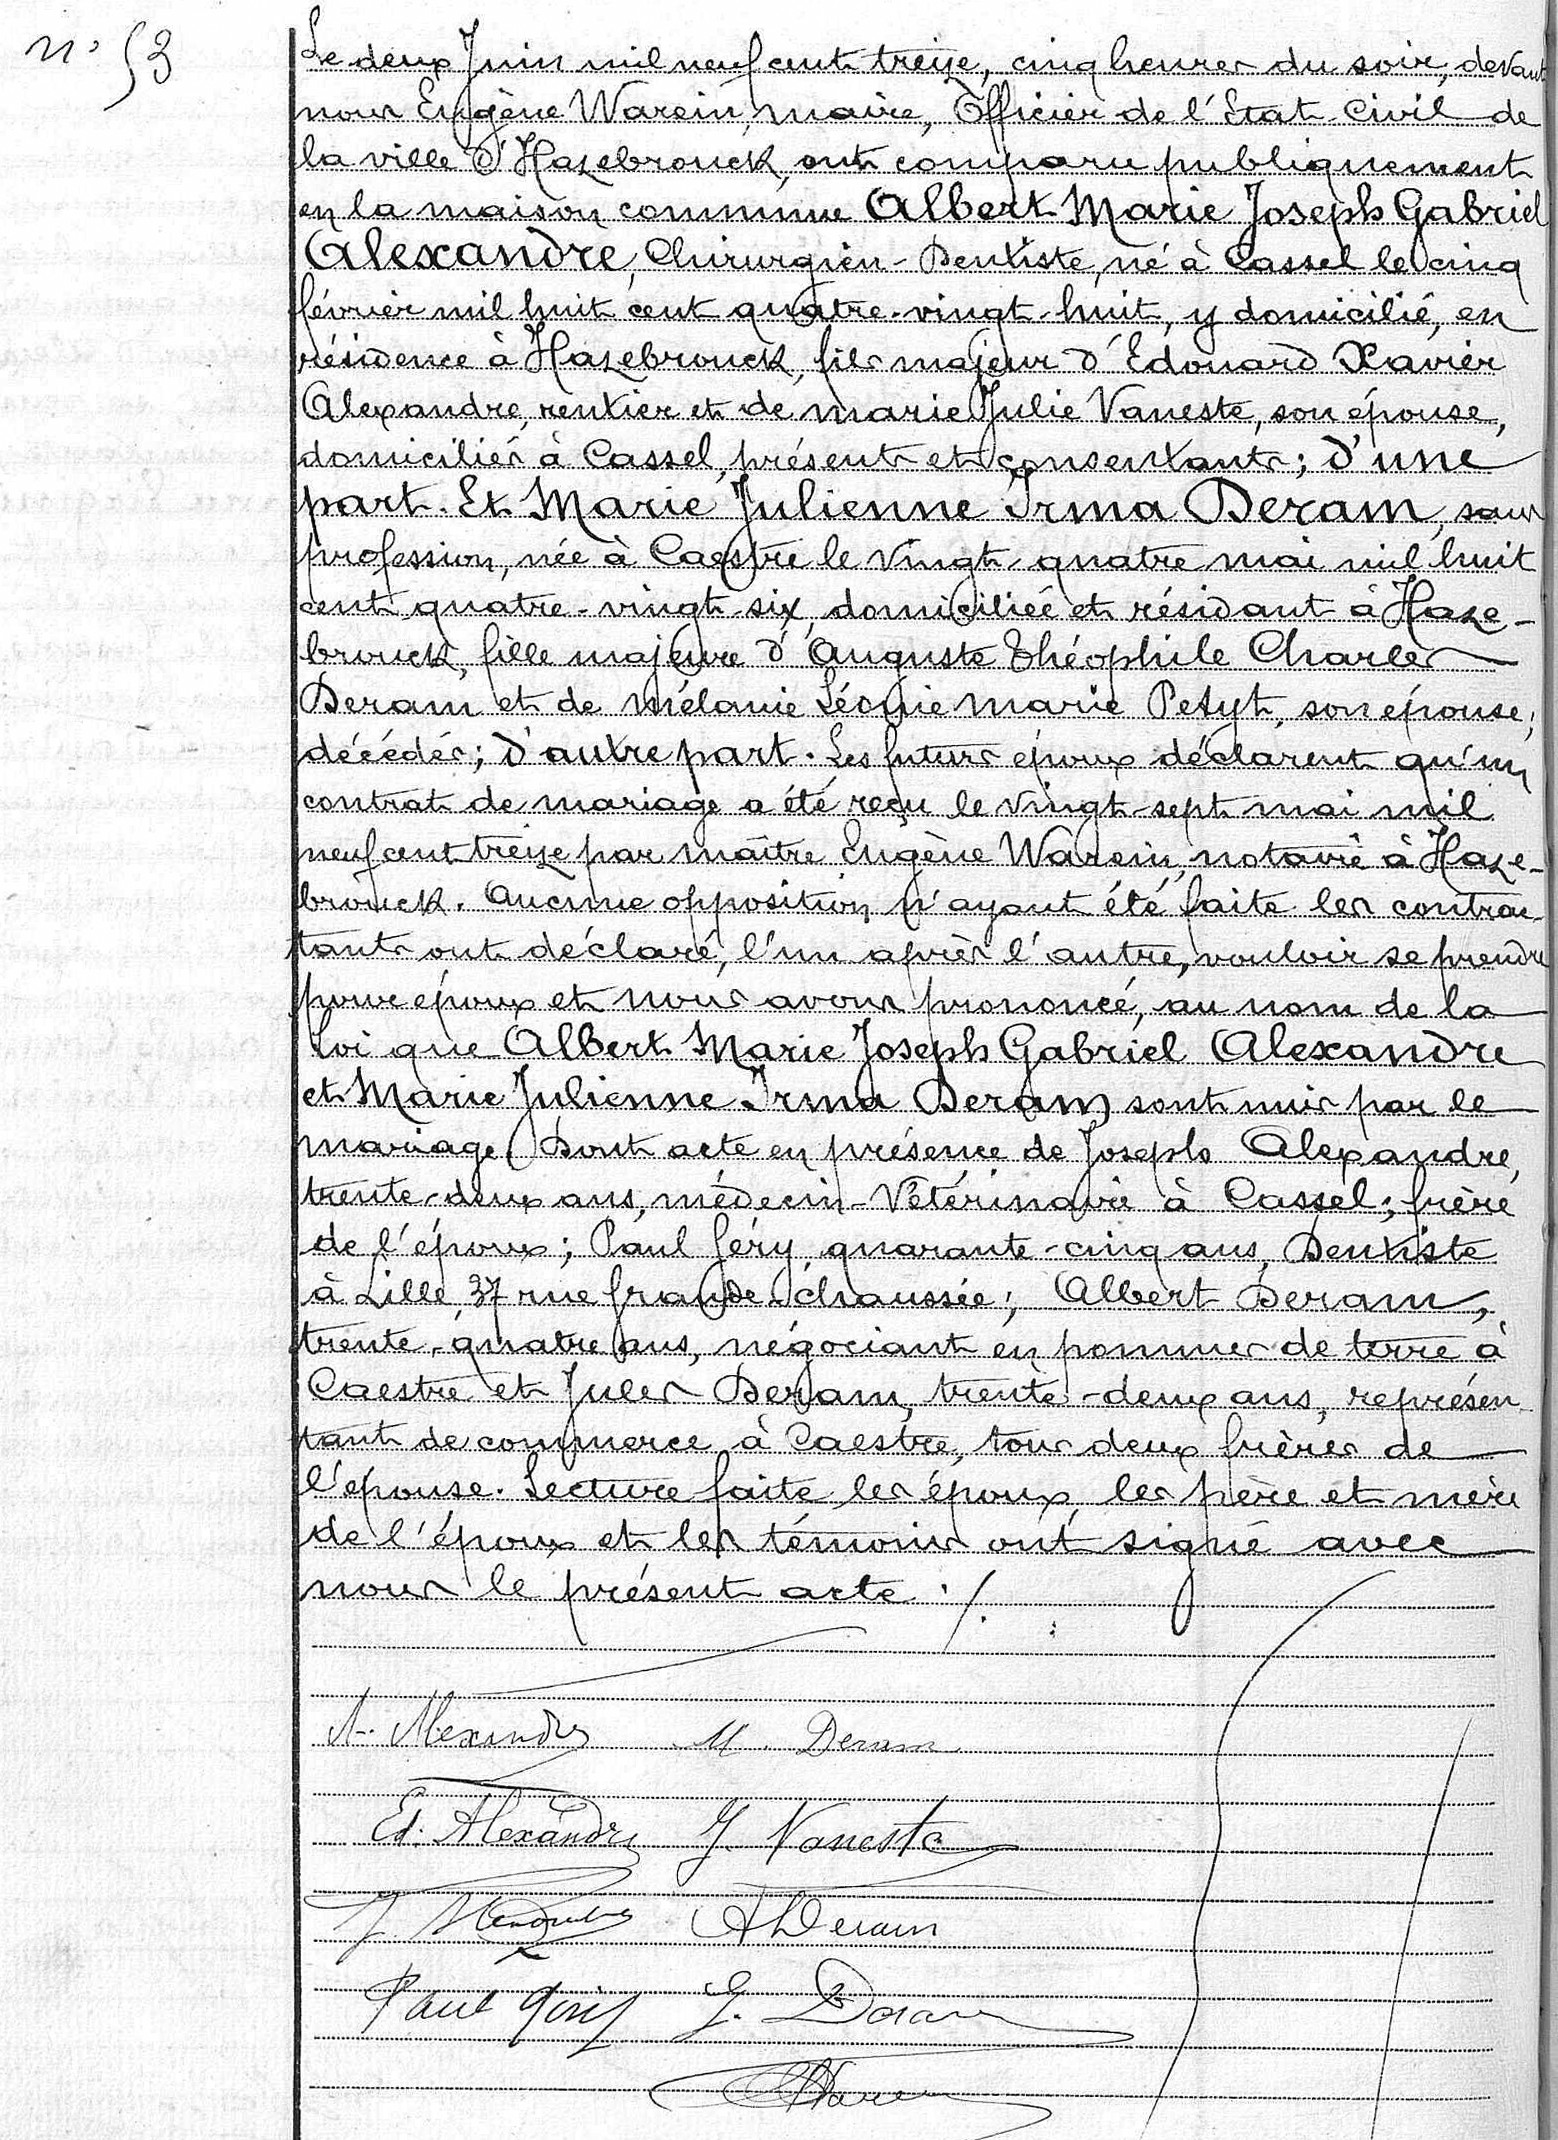 n° 53
Le deux Juin mil neuf cent treize, cinq heures du soir, devant
nous Eugène Warein, maire, Officier de l'Etat Civil de
la ville d'Hazebrouck, ont comparu publiquement
en la maison commune Albert Marie Joseph Gabriel
Alexandre, Chirurgien-Dentiste, né à Cassel le cinq
février mil huit cent quatre-vingt-huit, y domicilié, en
résidence à Hazebrouck, fils majeur d'Edouard Xavier
Alexandre, rentier et de marie Julie Vaneste, son épouse,
domiciliés à Cassel, présents et consentants; d'une
part. Et Marie Julienne Irma Deram, sans
profession, née à Caestre le vingt-quatre mai mil huit
cent quatre-vingt-six, domiciliée et résidant à Haze-
brouck, fille majeure d'Auguste Théophile Charles
Deram et de mélanie Léonie marie Petyt, son épouse,
décédés; d'autre part. Les futurs époux déclarent qu'un
contrat de mariage a été reçu le vingt-sept mai mil
neuf cent treize par maître Eugène Warein, notaire à Haze-
brouck. Aucune opposition n'ayant été faite les contrac-
tants ont déclaré, l'un après l'autre, vouloir se prendre
pour époux et nous avons prononcé, au nom de la
loi que Albert Marie Joseph Gabriel Alexandre
et Marie Julienne Irma Deram sont unis par le
mariage. Dont acte en présence de Joseph Alexandre,
trente-deux ans, médecin-Vétérinaire à Cassel; frère
de l'époux; Paul Géry, quarante-cinq ans, Dentiste
à Lille, 37 rue Grande chaussée; Albert Deram,
trente-quatre ans, négociant en pommes de terre à
Caestre et Jules Deram, trente-deux ans, représen-
tant de commerce à Caestre, tous deux frères de
l'épouse. Lecture faite les époux, les père et mère
de l'époux et les témoins ont signé avec
nous le présent acte ./.
A. Alexandre M. Deram
Ed. Alexandre J. Vaneste
J. Alexandre A Deram
Paul Géry J. Deram
E Warein